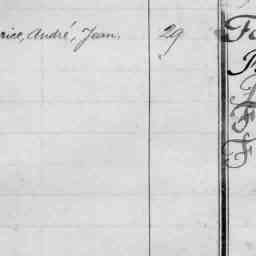 rice, André, Jean. 29
Fa
F
F